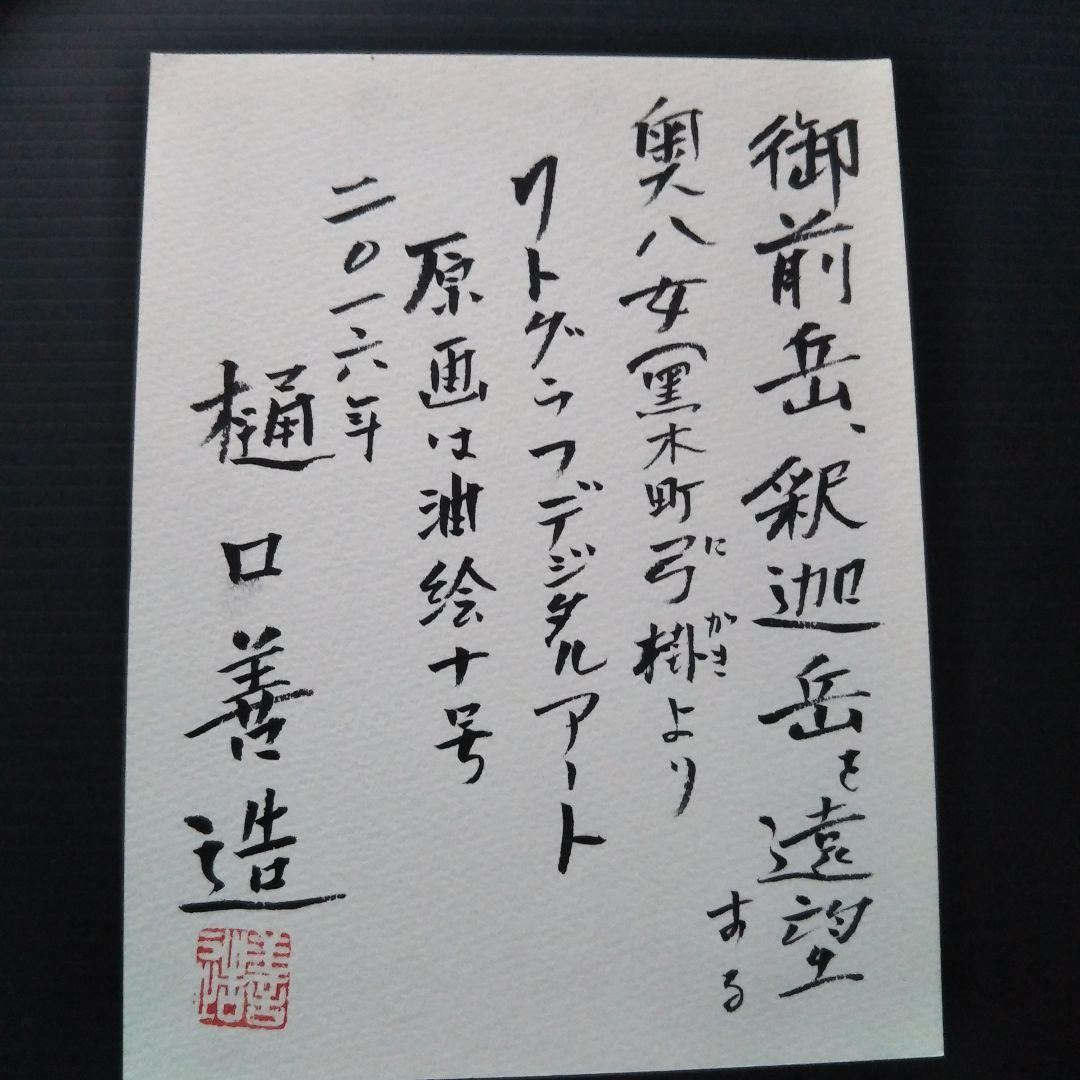 御前岳、釈迦岳を遠望
する
奥八女(黒木町弓掛より
にかき
リトグラフデジタルアート
原画は油絵十号
二〇一六年
樋口善造
善造